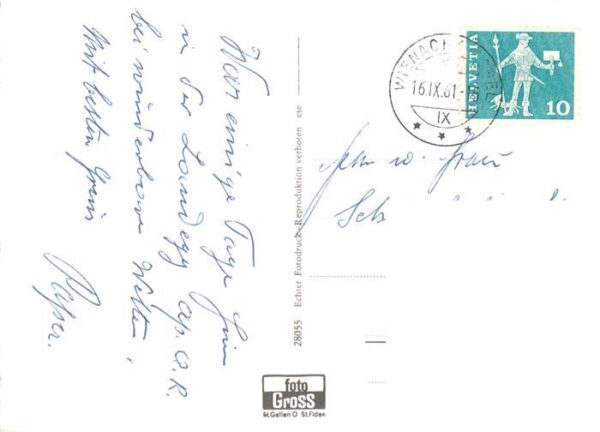 War einige Tage hier
in der Landegg Ap. A. R.
bei wunderbarem Wetter.
Mit besten Grüss
WIENACHT
16.IX.61
IX
HELVETIA
10
28055 Echter Fotodruck - Reproduktion verboten ese
foto
Gross
St.Gallen O St.Fiden